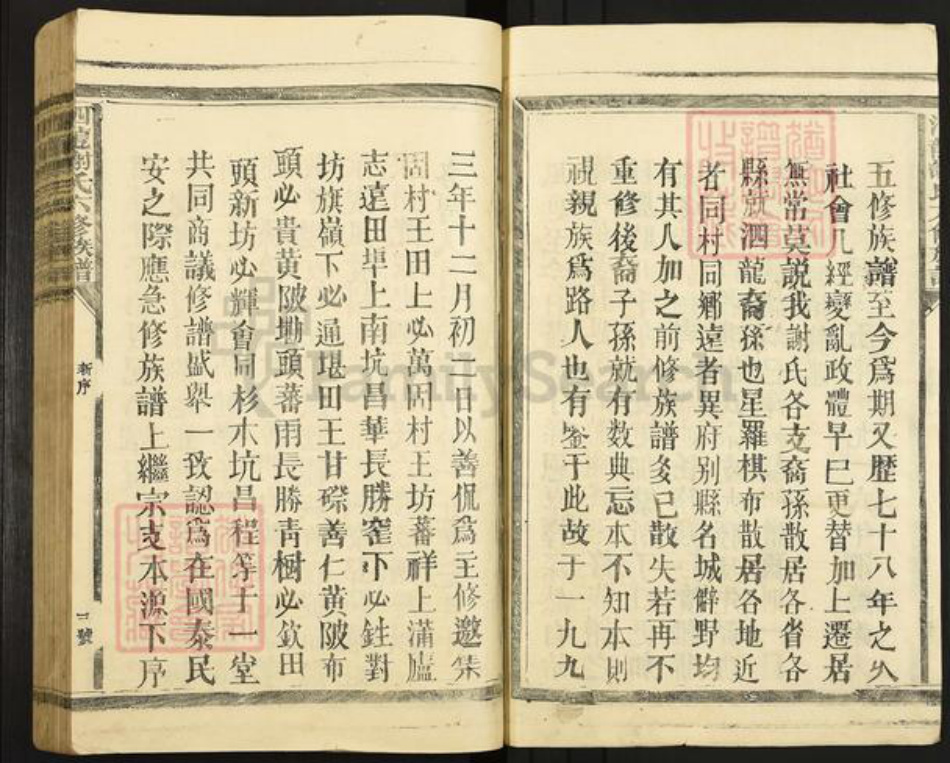 五修族譜至今爲期又歷七十八年之久
社會几經變亂政體早已更替加上遷居
無常莫説我謝氏各支裔孫散居各省各
縣就泗龍裔孫也星羅棋布散居各地近
者同村同鄉遠者異府别縣名城僻野均
有其人加之前修族譜多已散失若再不
重修後裔子孫就有数典忘本不知本則
視親族爲路人也有鉴于此故于一九九
三年十二月初二日以善侃爲主修邀集
固村王田上必萬固村王坊蕃祥上滿廬
志遠田埠上南坑昌華長勝窰下必鉎對
坊旗嶺下必通堪田王甘磜善仁黄陂布
頭必貴黄陂墈頭蕃雨長勝青樹必欽田
頭新坊必輝會同杉木坑昌程等于一堂
共同商議修譜盛舉一致認爲在國泰民
安之際應急修族譜上繼宗支本源下序
謝氏六修族譜
新序
二號
FamilySearch